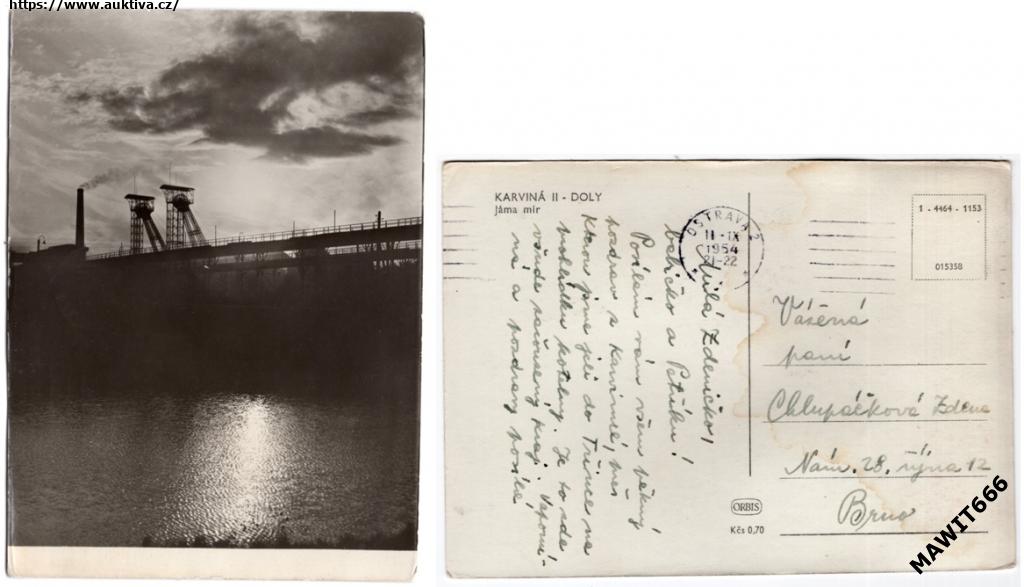 https://www.auktiva.cz/
KARVINÁ II - DOLY
Jáma mír
OSTRAVA 2
11-IX
1954
21-22
1 - 4464 - 1153
015358
Milá Zdeničko,
babičko a Petříku!
Posílám vám všem pěkný
pozdrav z Karvinné, přes
Kterou jsme jeli do Třince na
prohlídku kotelny. Je to zde
všude kraj.
a pozdravy posílá,
Vážená
paní
Chlupáčková Zdena
Nám. 28. října 12
Brno
ORBIS
Kčs 0,70
MAWIT666